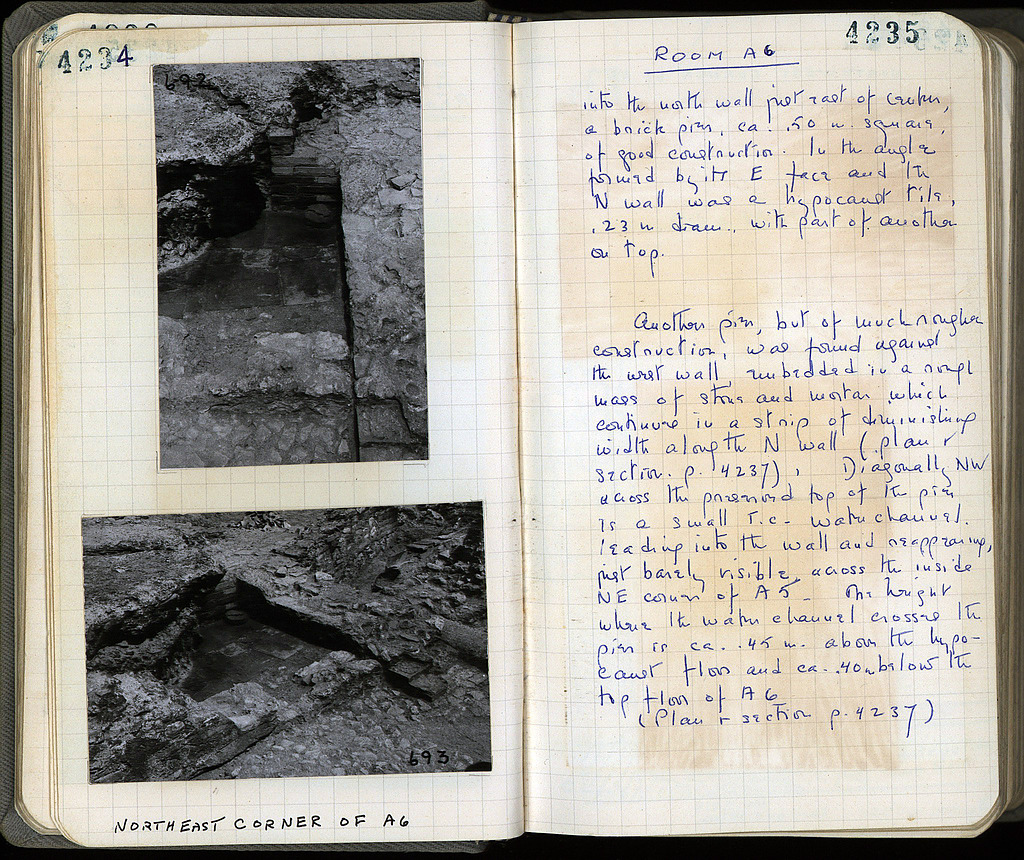 4234
692
693
NORTHEAST CORNER OF A6
4235
ROOM A6
into the north wall just east of center,
a brick pier, ca. .50 m. square,
of good construction. In the angle
formed by its E face and the
N wall was a hypocaust tile,
.23 m diam., with part of another
on top.
Another pier, but of much rougher
construction, was found against
the west wall, embedded in a rough
mass of stone and mortar which
continues in a strip of diminishing
width along the N wall (plan +
section. p. 4237). Diagonally NW
across the preserved top of the pier
is a small T.C. water channel.
leading into the wall and reappearing,
just barely visible, across the inside
NE corner of A5. The height
where the water channel crosses the
pier is ca. .45 m. above the hypo-
caust floor and ca. .40m below the
top floor of A6
(Plan + section p. 4237)